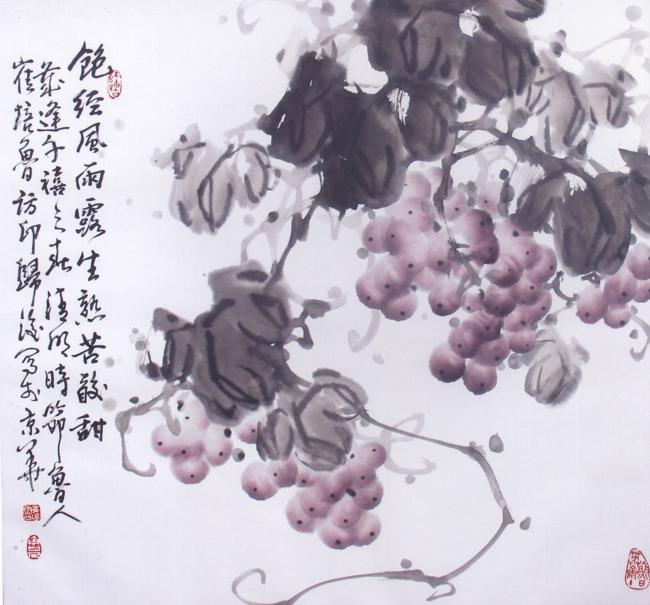 饱经风雨露生熟苦酸甜
岁逢千禧之春清明时节鲁人
崔培鲁访印归后写于京华